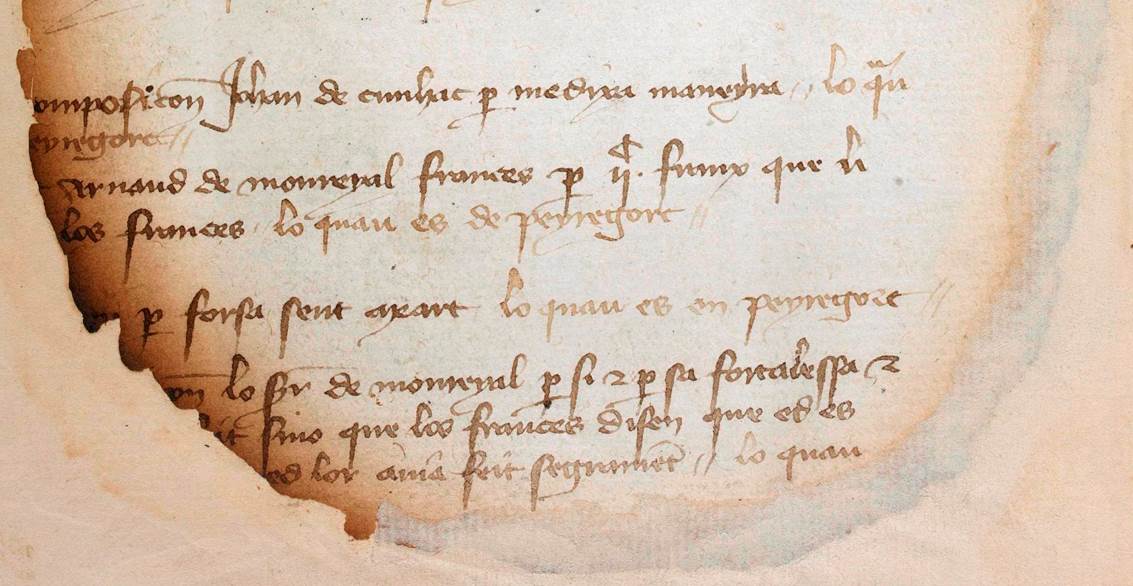 omposicon Johan de cunhac p medixa maneyra // lo qau
eyregort //
Arnaud de monreyal frances p ii c. franx que li
los frances lo quau es de peyregort //
p forsa sent axart lo quau es en peyregort //
on lo Sr de monreyal p si 2 p sa fortalessa 2
sino que los frances disen que ed es
ed lor avia feit segrament // lo quau